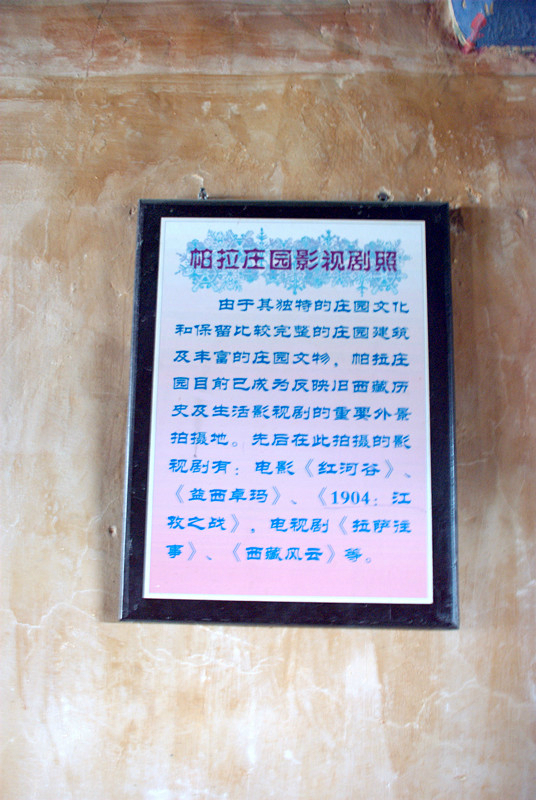 帕拉庄园影视剧照
由于其独特的庄园文化
和保留比较完整的庄园建筑
及丰富的庄园文物，帕拉庄
园目前已成为反映旧西藏历
史及生活影视剧的重要外景
拍摄地。先后在此拍摄的影
视剧有：电影《红河谷》、
《益西卓玛》、《1904：江
孜之战》，电视剧《拉萨往
事》、《西藏风云》等。